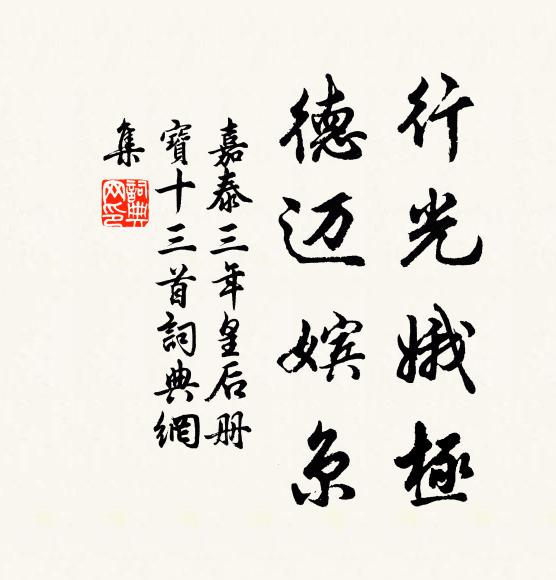 行光娥極
德迈嬪京
嘉泰三年皇后册
寶十三首詞典網
集
詞典
网印